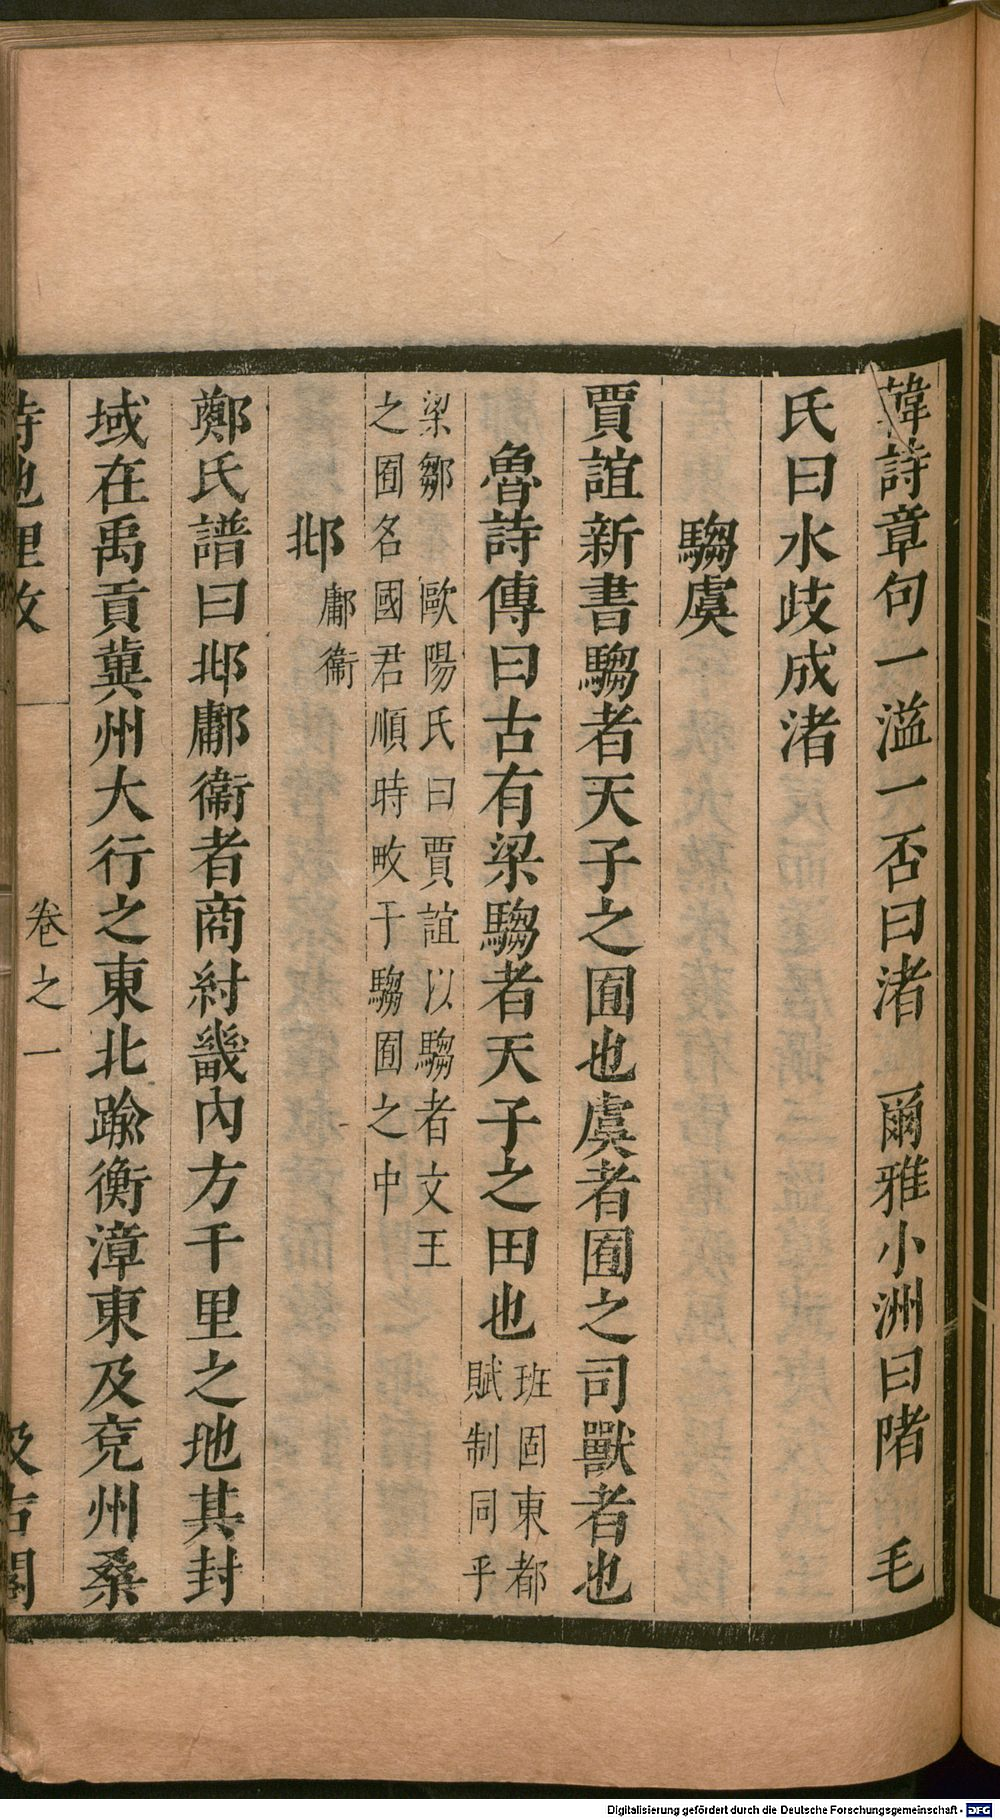 韓詩章句一溢一否曰渚　爾雅小洲曰陼　毛
氏曰水歧成渚
騶虞
賈誼新書騶者天子之囿也虞者囿之司獸者也
魯詩傳曰古有梁騶者天子之田也
班固東都
賦制同乎
梁鄒　歐陽氏曰賈誼以騶者文王
之囿名國君順時畋于騶囿之中
邶
鄘衞
鄭氏譜曰邶鄘衞者商紂畿內方千里之地其封
域在禹貢冀州大行之東北踰衡漳東及兗州桑
詩地理攷
卷之一
汲古閣
Digitalisierung gefördert durch die Deutsche Forschungsgemeinschaft - DFG